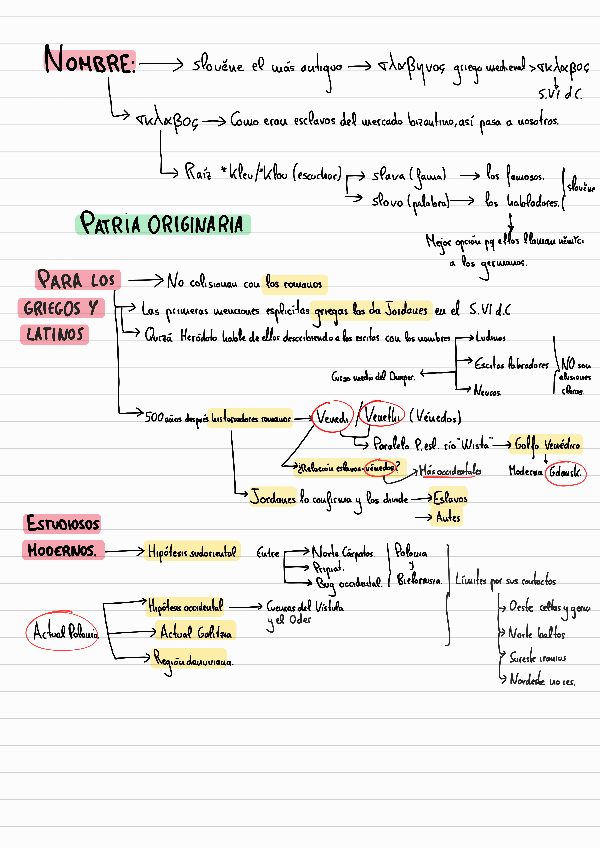 NOMBRE: → slověne el más antiguo → σκλαβηνος griego medieval > σκλαβος
S.VI d.C.
σκλαβος → Como eran esclavos del mercado bizantino, así pasa a nosotros.
Raíz *kleu/*klou (escuchar) → slava (fama) → los famosos.
slověne
slovo (palabra) → los habladores.
PATRIA ORIGINARIA
Mejor opción pq ellos llaman
a los germanos.
PARA LOS → No colisionan con los romanos
GRIEGOS Y → Las primeras menciones explícitas griegas las da Jordanes en el S.VI d.C
LATINOS → Quizá Heródoto hable de ellos describiendo a los escitas con los nombres → Ludinos
→ Escitas labradores
NO son
alusiones
claras.
Curso medio del Dnieper.
→ Neuros.
500 años después historiadores romanos → Venedi / Venethi (Vénedos)
Paralelo P. esl. río "Wista" → Golfo Venédico
¿Relación eslavos-vénedos? → Más occidentales
Moderna Gdansk.
Jordanes lo confirma y los divide → Eslavos
→ Antes
ESTUDIOSOS
MODERNOS. → Hipótesis sudoriental Entre → Norte Cárpatos.
→ Pripiat.
→ Bug occidental.
Polonia
y
Bielorrusia.
Límites por sus contactos
Hipótesis occidental → Cuencas del Vístula
y el Oder
→ Oeste celtas y germ
Actual Polonia. → Actual Galitzia
→ Norte baltos
→ Región danuviana.
→ Sureste iranios
→ Nordeste